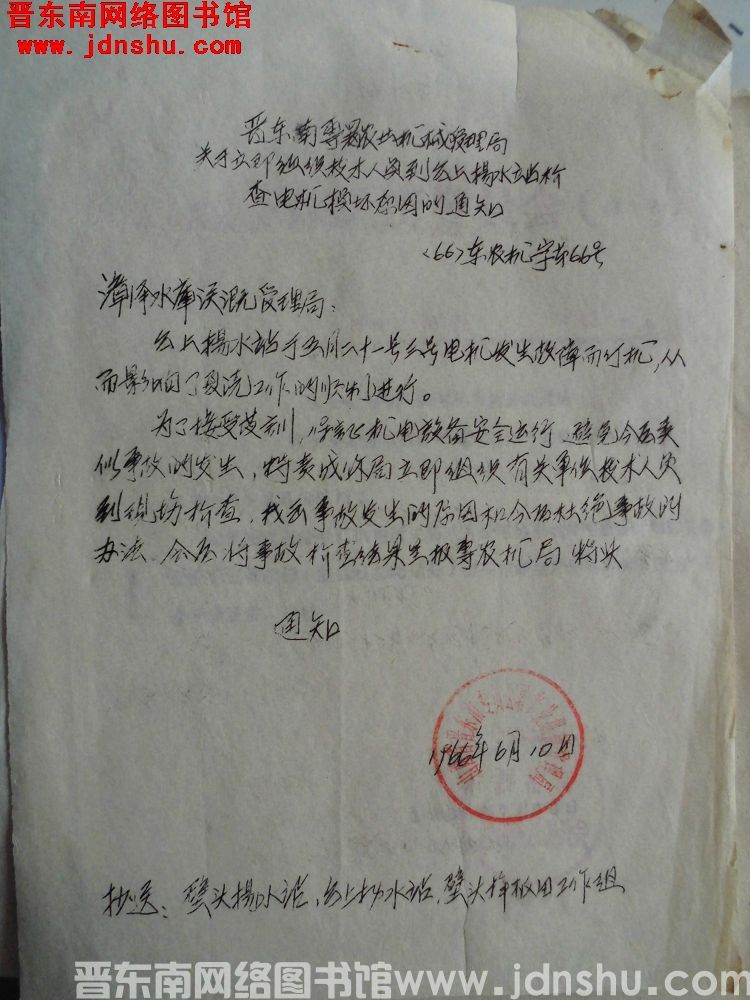 晋东南网络图书馆
www.jdnshu.com
晋东南专署农业机械管理局
关于立即组织技术人员到云上揚水站检
查电机损坏原因的通知
(66)东农机字第66号
漳泽水库灌溉管理局:
云上揚水站于五月二十一号三号电机发生故障而停机,从
而影响了夏浇工作的顺利进行。
为了接受教训,保证机电设备安全运行,避免今后类
似事故的发生,特责成你局立即组织有关单位技术人员
到现场检查,找出事故发生的原因和今后杜绝事故的
办法,今后将事故检查结果上报专农机局,特此
通知
1966年6月10日
抄送:壁头揚水站,云上扬水站,壁头样板田工作组
晋东南网络图书馆www.jdnshu.com